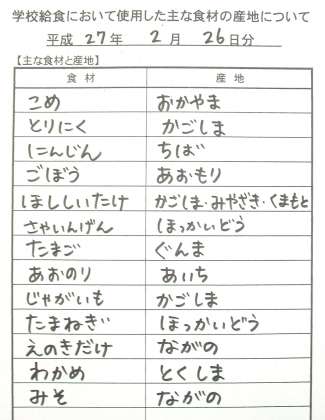 学校給食において使用した主な食材の産地について
平成 27 年 2 月 26 日分
【主な食材と産地】
食材 産地
こめ おかやま
とりにく かごしま
にんじん ちば
ごぼう あおもり
ほししいたけ かごしま・みやざき・くまもと
さやいんげん ほっかいどう
たまご ぐんま
あおのり あいち
じゃがいも かごしま
たまねぎ ほっかいどう
えのきだけ ながの
わかめ とくしま
みそ ながの